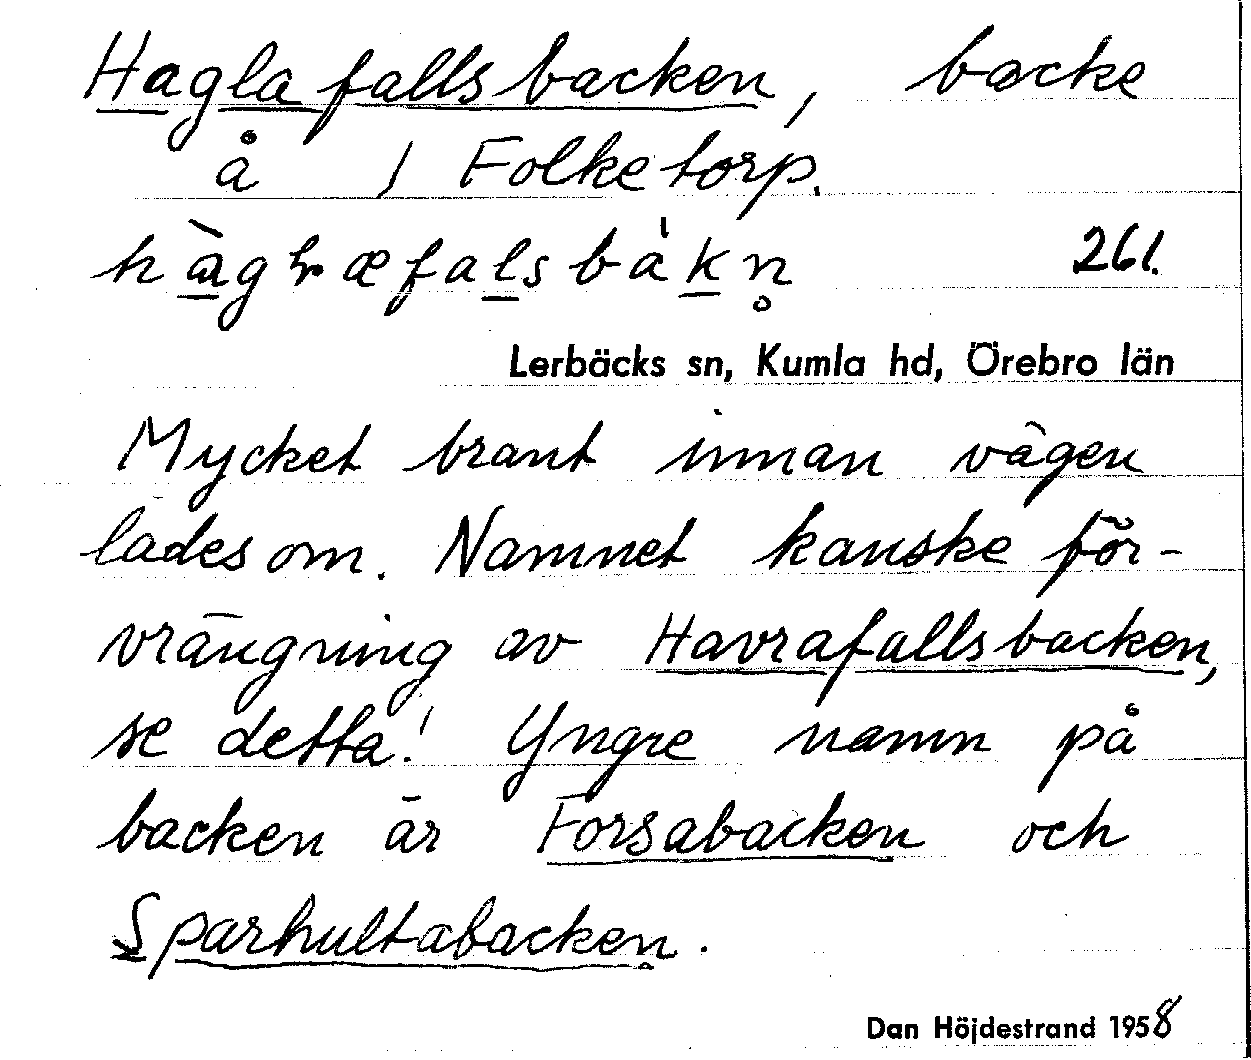 Haglafallsbacken, backe
å 1 Folketorp.
261.
Lerbäcks sn, Kumla hd, Örebro län
Mycket brant innan vägen
lades om. Namnet kanske för-
vrängning av Havrafallsbacken,
se detta! Yngre namn på
backen är Forsabacken och
Sparhultabacken.
Dan Höjdestrand 1958